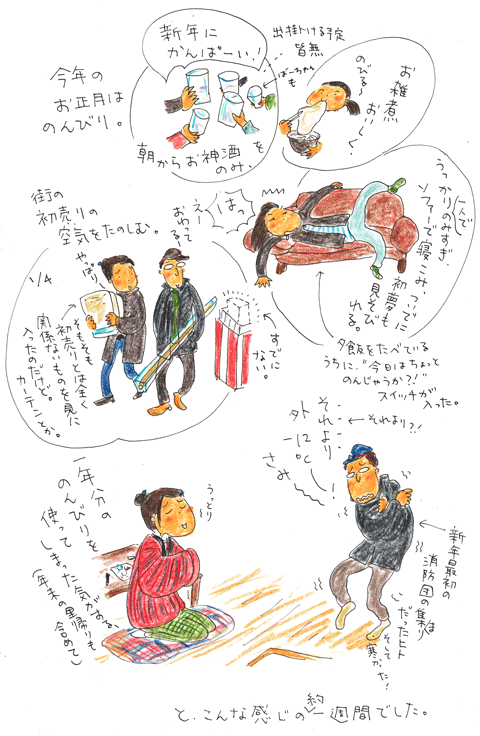 今年の
お正月は
のんびり。
新年に
かんぱーい!
出掛ける予定
皆無
ばーちゃん
も
朝からお神酒を
のみ、
お雑煮
のびる~
おいしく!
うっかりのみすぎ、
んで
ソファーで寝こみ、ついでに
初夢も
見そび
れる。
はっ
えー
おわってるー
街の
初売りの
空気をたのしむ。
やっぱり
1/4
そもそも
初売りとは全く
関係ないものを見に
入ったのだけど。
カーテンとか。
すでに
ない。
夕飯をたべている
うちに、“今日はちょっと
のんじゃうか?!”
スイッチが
入った。
それより
外
-12℃
!
さみぃ~
それより?!
新年最初の
消防団の集まり
だったヒト
そして
寒かった!
うっとり
一年分の
のんびりを
使ってしまった気がする。
(年末の里帰りも
含めて)
と、こんな感じの約一週間でした。